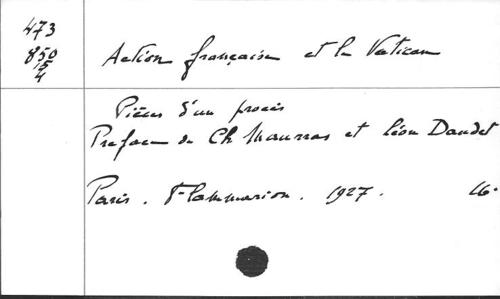 473
850
15
4
Action française et le Vatican
Pièces d'un procès
Preface de Ch Maurras et Léon Daudet
Paris. Flammarion. 1927.